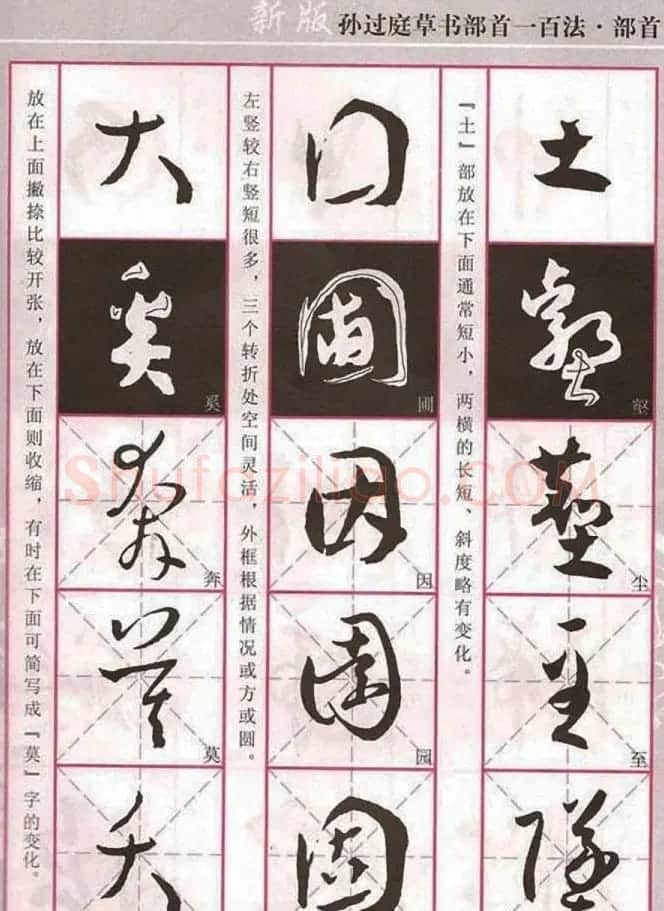 新版 孙过庭草书部首一百法·部首
土
『土』部放在下面通常短小，两横的长短、斜度略有变化。
壑
尘
至
囗
左竖较右竖短很多，三个转折处空间灵活，外框根据情况或方或圆。
圃
因
园
固
大
放在上面撇捺比较开张，放在下面则收缩，有时在下面可简写成『莫』字的变化。
奚
奔
莫
Shufaziliao.COM